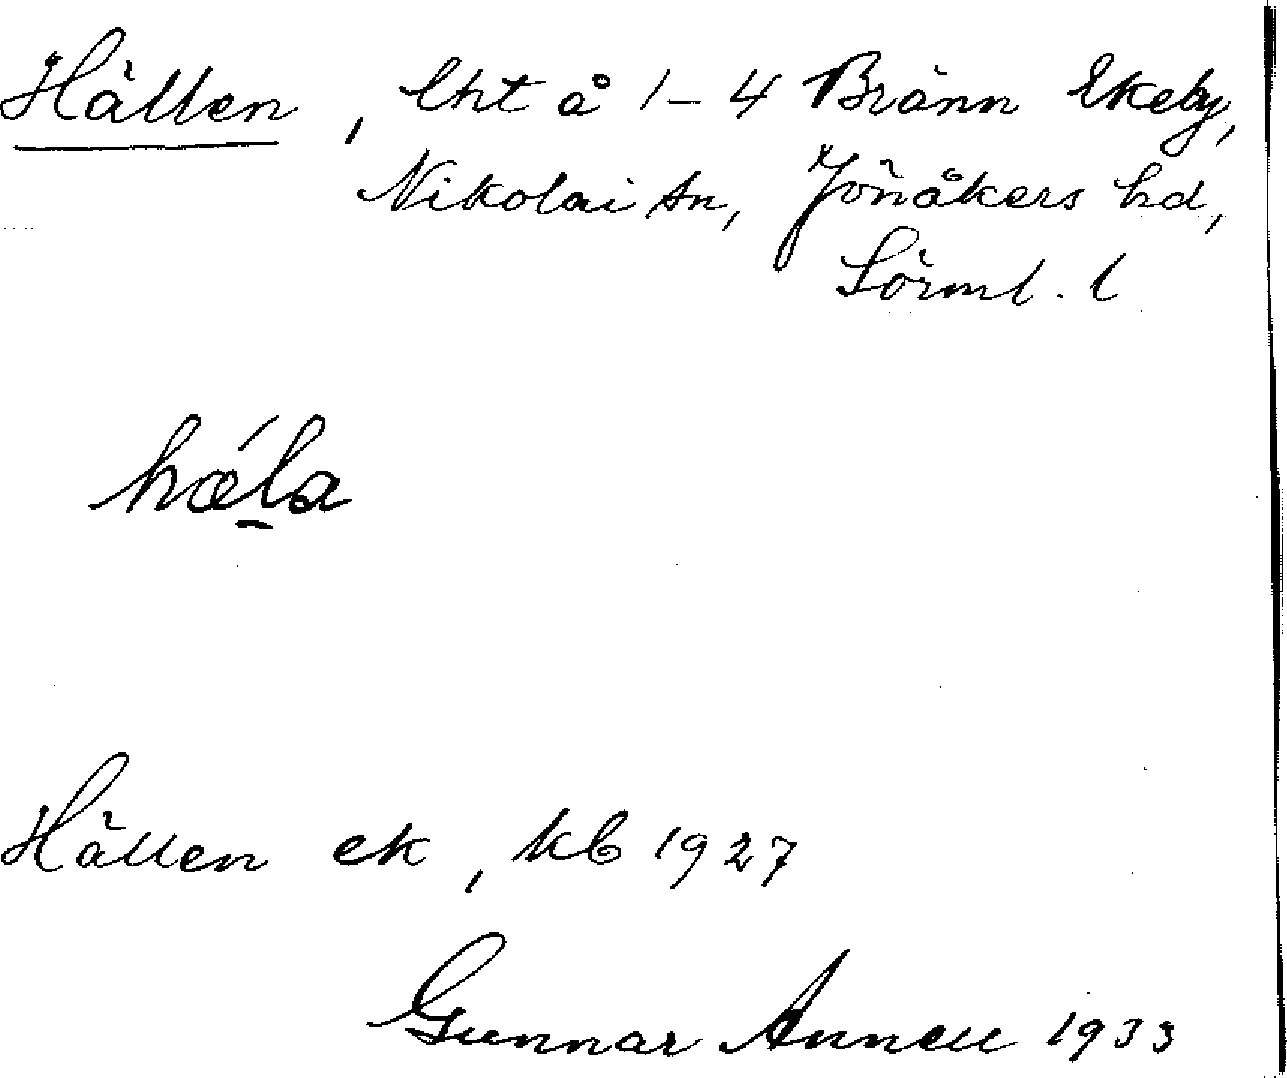 Hällen, lht å 1-4 Bränn Ekeby,
Nikolai sn, Jönåkers hd,
Sörml. l
hæ´l̲a
Hällen ek, kb 1927
Gunnar Annell 1933